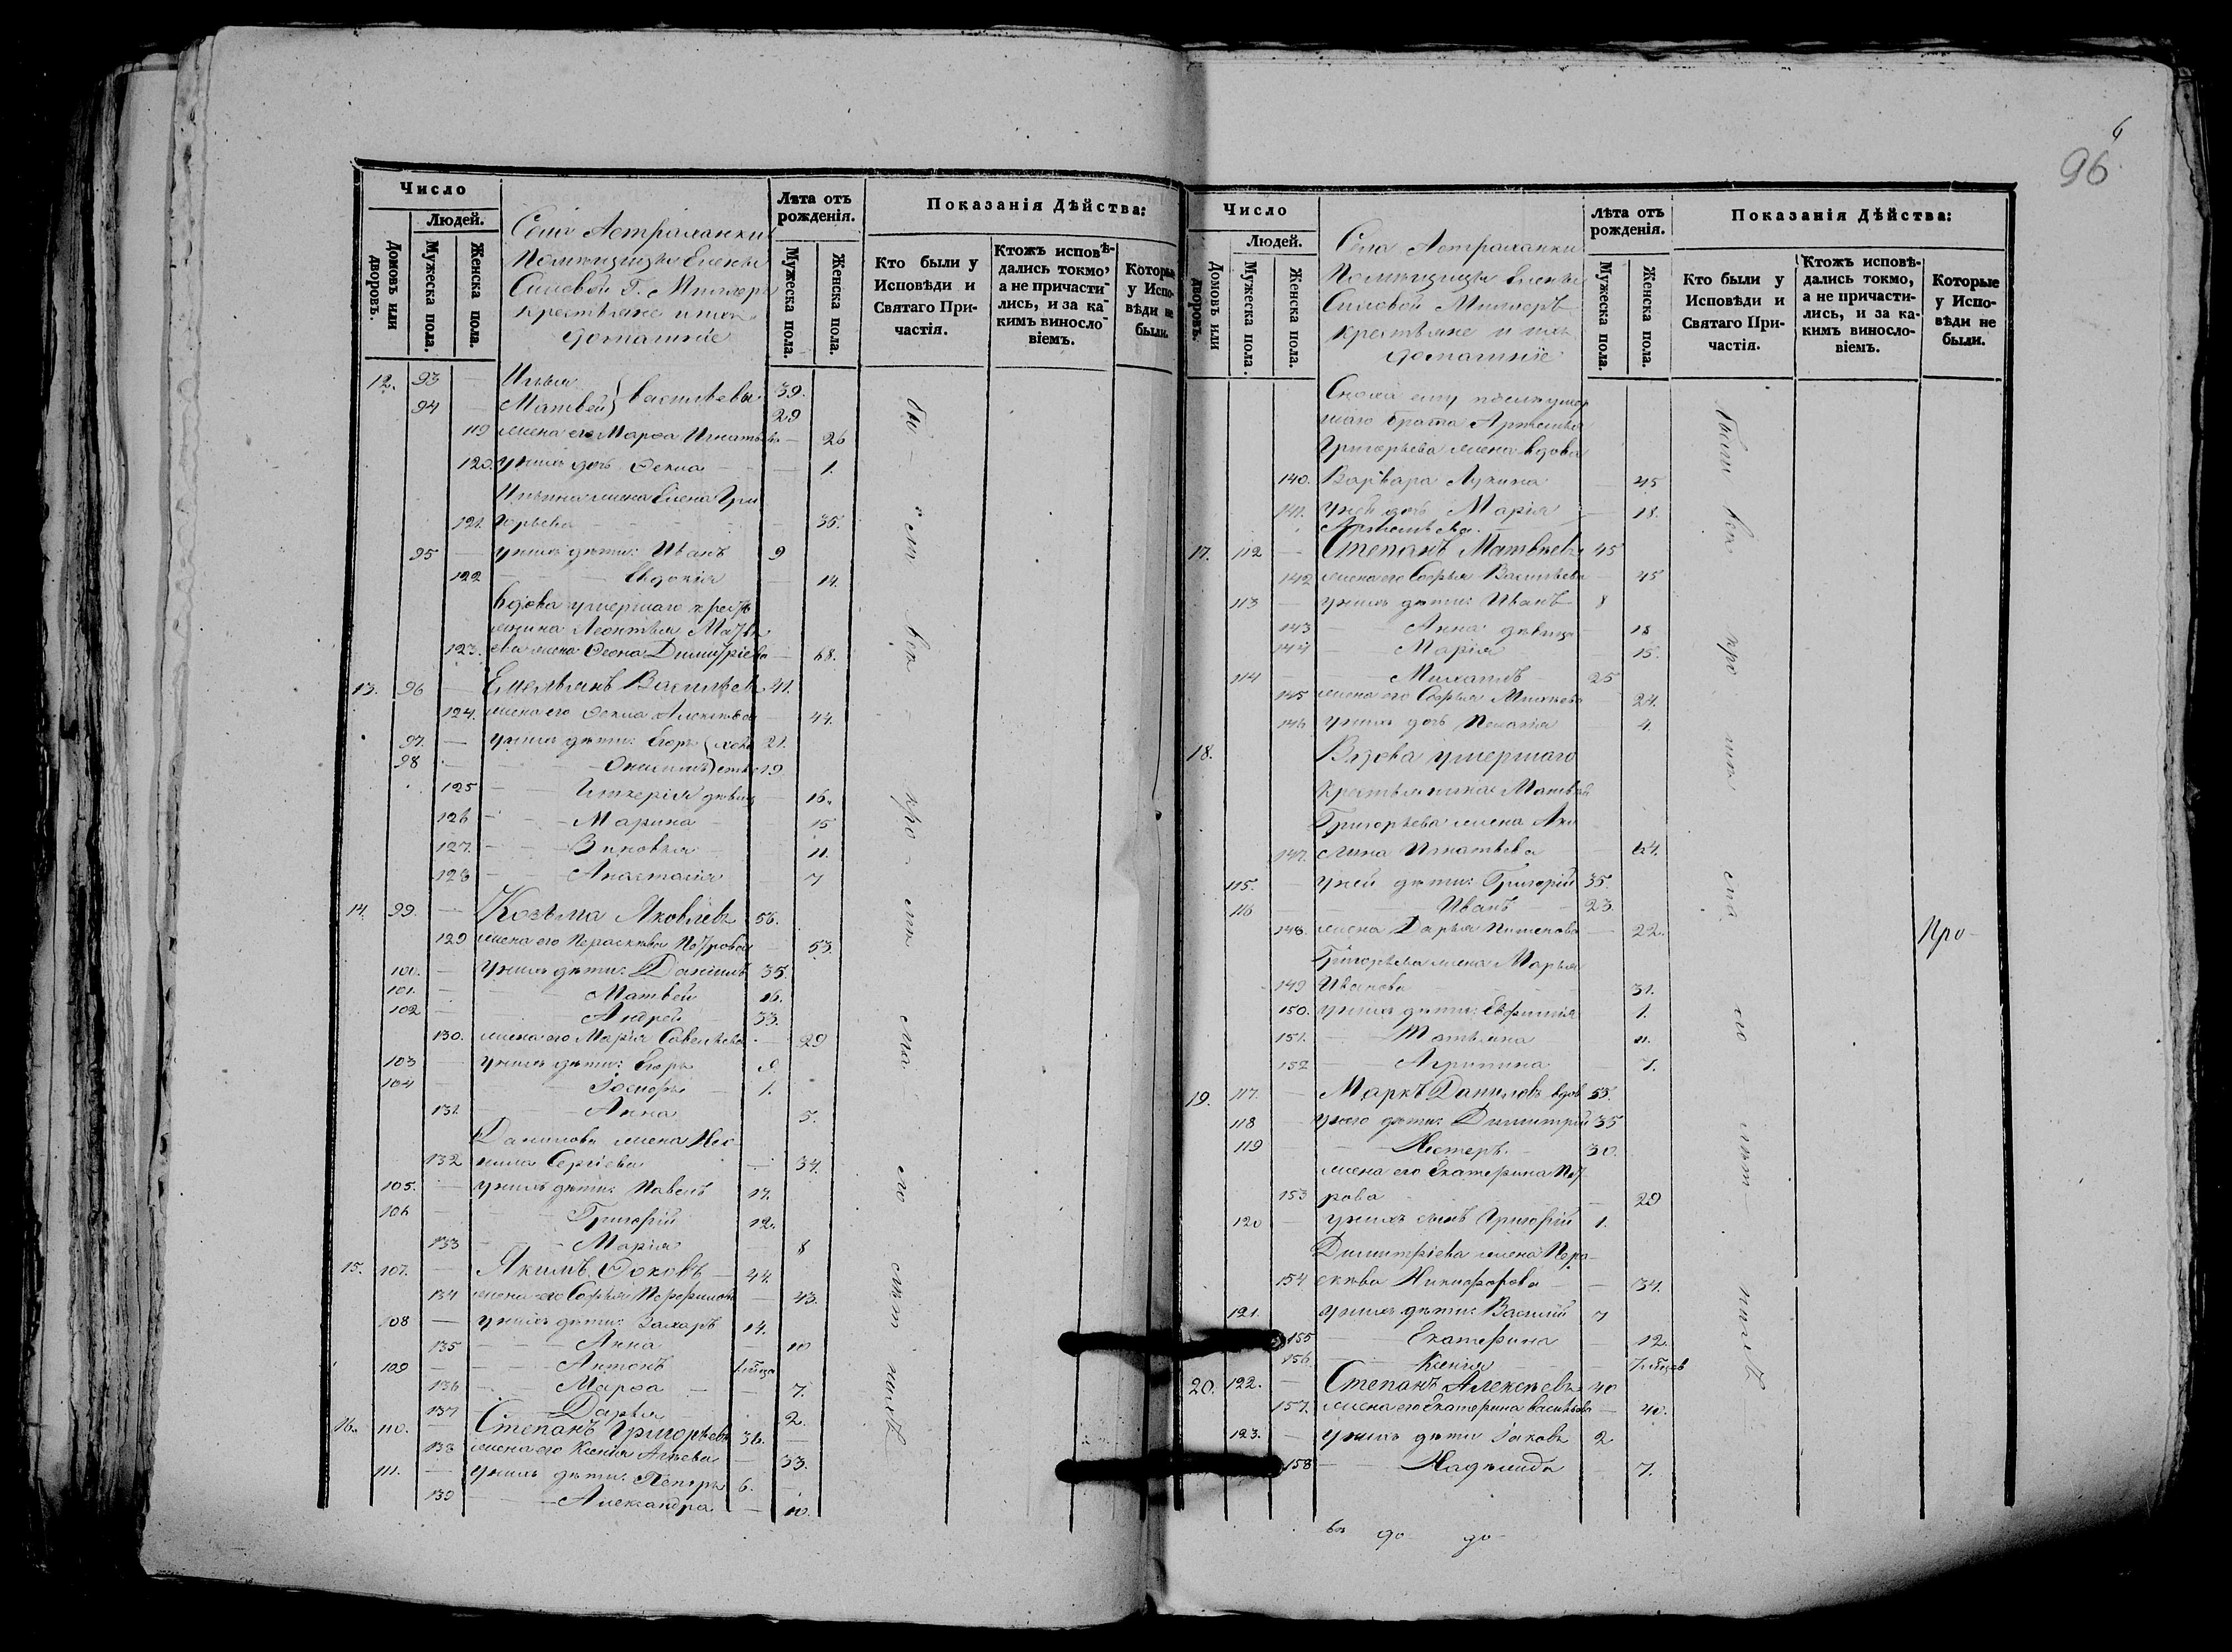 96
6
Число
Людей.
Домовъ или дворовъ.
Мужеска пола.
Женска пола.
Села Астраханки
Помѣщицы Елены
Силевой Г. Миллеръ
крестьяне и ихъ
домашніе
Лѣта отъ рожденія.
Мужеска пола.
Женска пола.
Показанія Дѣйства:
Кто были у Исповѣди и Святаго Причастія.
Ктожъ исповѣдались токмо, а не причастились, и за какимъ винословіемъ.
Которые у Исповѣди не были.
12. 93 — Илья } Васильевы 39.
94 — Матвей 29
119 жена его Марѳа Игнатьева — 26
120. у нихъ дочь Ѳекла — 1.
Ильина жена Елена Гри
121. горьева — 35.
95 — у нихъ дѣти: Иванъ 9
122 — Евдокія — 14.
Вдова умершаго крестья
янина Леонтья Матвѣ
123. ева жена Димитріева — 68.
13. 96 — Емельянъ Васильевъ 41.
124. жена его Ѳекла Алексѣева — 44.
97. — у нихъ дѣти: Егоръ } холо 21.
98 — Онисимъ } сты 19
125 — Гликерія девица 16.
126 — Марина 15
127. — Зиновья 11.
128 — Анастасія 7
14. 99. — Козьма Яковлевъ 56.
129 жена его Параскѣва Петрова 53.
100. — у нихъ дѣти: Даніилъ 35.
101. — Матвей 16.
102 — Андрей 33.
130. жена его Марія Савельева — 29
103 — у нихъ дѣти: Егоръ 9
104 — Іосифъ 1.
131. — Анна 5.
Данилова жена
132 нила Сергіева — 34.
105. — у нихъ дѣти: Павелъ 17.
106 — Григорій 12.
133 — Марія — 8
15. 107. — Якимъ Ѳоковъ — 44.
134 жена его Софья — 43.
108 — у нихъ дѣти: Захаръ 14.
135 — Анна — 10
109 — Антонъ
136 — Марѳа — 7.
137 — Дарья 2.
16. 110. — Степанъ Григорьевъ 36.
138 жена его Ксенія Агѣева — 33.
111. — у нихъ дѣти: Петръ 6.
139 — Александра — 10.
Число
Людей.
Домовъ или дворовъ.
Мужеска пола.
Женска пола.
Села Астраханки
Помѣщицы Елены
Силевой Миллеръ
крестьяне и ихъ
домашніе
Лѣта отъ рожденія.
Мужеска пола.
Женска пола.
Показанія Дѣйства:
Кто были у Исповѣди и Святаго Причастія.
Ктожъ исповѣдались токмо, а не причастились, и за какимъ винословіемъ.
Которые у Исповѣди не были.
Сноха ему послѣ умер
шаго брата Артемья
Григорьева жена вдова
140. Варвара Лукина — 45
141. у ней дочь Марія — 18.
Артемьева.
17. 112 — Степанъ Матвѣевъ 45
142 жена его Софья Васильева — 45
113 — у нихъ дѣти: Иванъ 8
143 — Анна дѣвица — 18
144 — Марія — 15.
114 — Михаилъ 25
145 жена его Софья — 24.
146 у нихъ дочь Пелагія — 4.
18. Вдова умершаго
крестьянина Матвѣя
Григорьева жена Аку
147. лина Игнатьева — 64.
115. — у ней дѣти: Григорій 35.
116 — Иванъ 23.
148. жена Дарья Пименова — 22.
Григорьева жена Марья
149 Иванова — 31.
150. у нихъ дѣти: Ефимія 1.
151. — Татьяна 11.
152 — Агрипина — 7.
Про-
19. 117. — Маркъ Даниловъ вдов 55.
118 — у него дѣти: Димитрій 35
119 — Нестеръ 30.
жена его Екатерина Пет
153 рова — 29
120 — у нихъ сынъ Григорій 1.
Димитріева жена Пара
154 скѣва Никифорова — 34.
121. у нихъ дѣти: Василій 7
155 — Екатерина — 12.
156 — Ксенія —
20. 122. — Степанъ Алексѣевъ 40
157. жена его Екатерина Васильева — 40.
123. — у нихъ дѣти Іаковъ 2
158 — Надежда — 7.